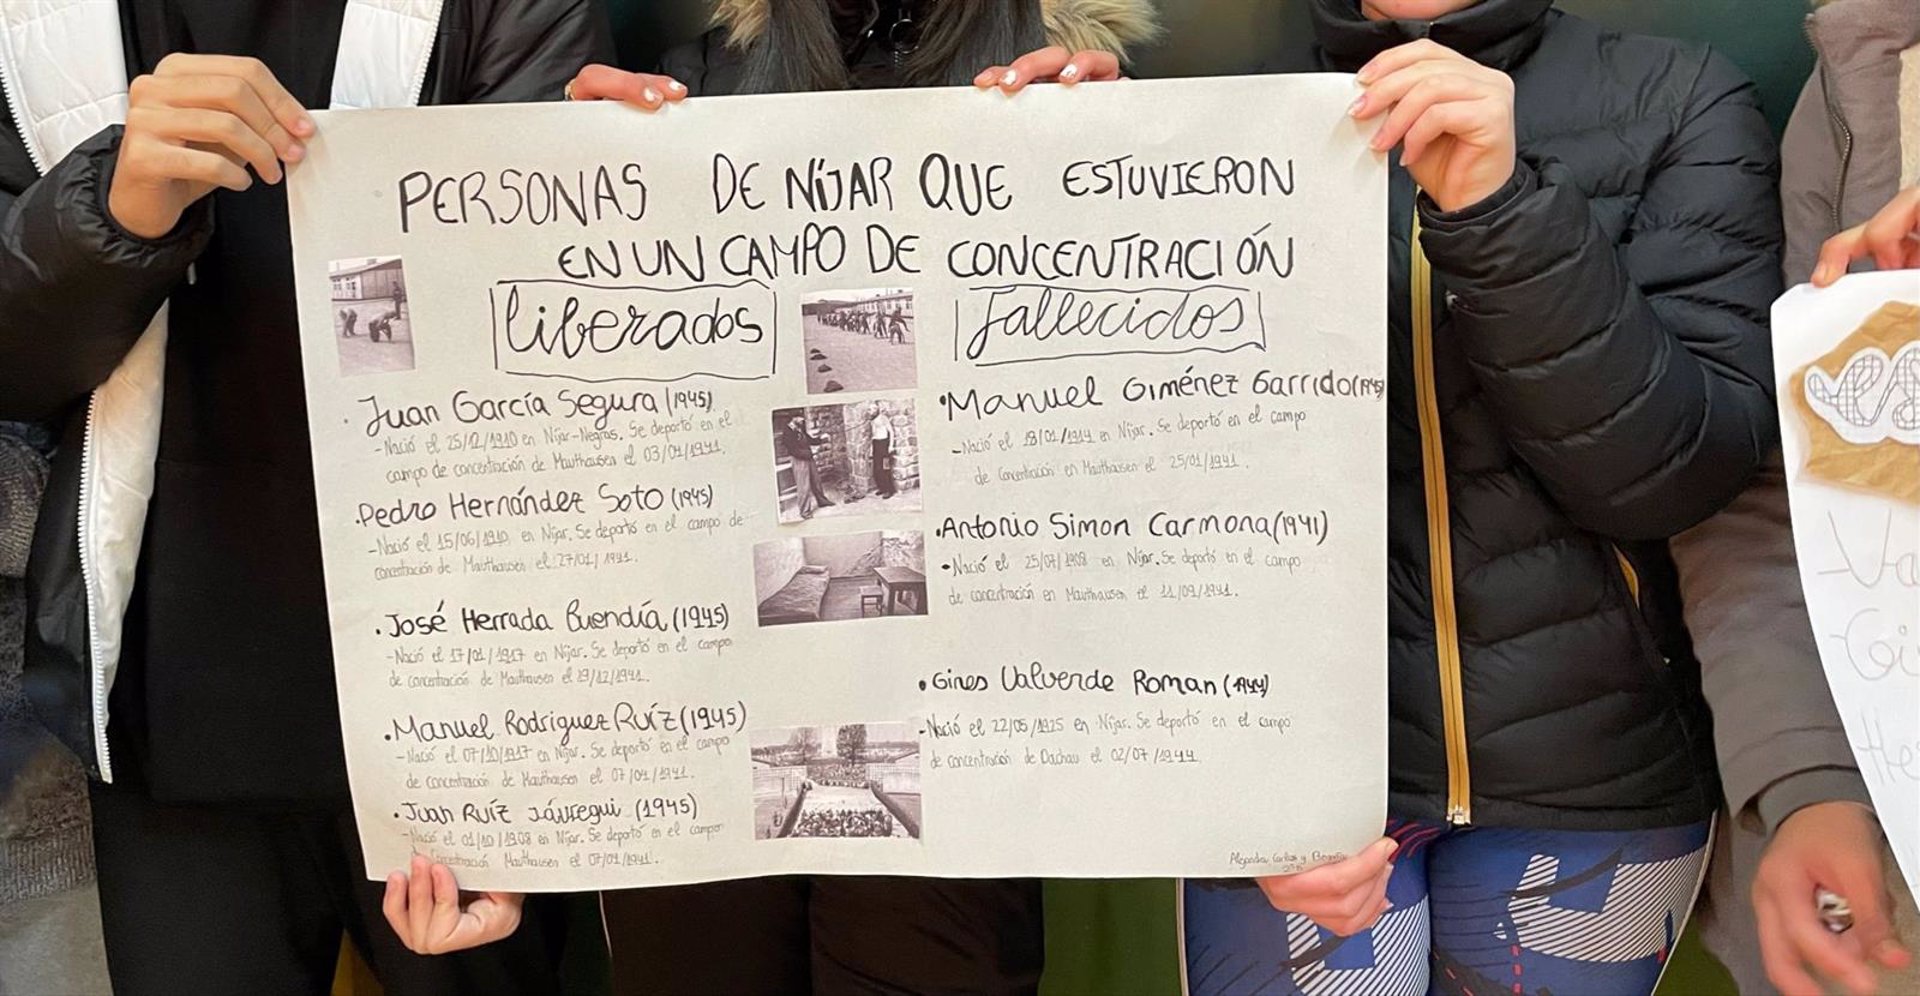 PERSONAS DE NÍJAR QUE ESTUVIERON
EN UN CAMPO DE CONCENTRACIÓN
liberados
· Juan García Segura (1945)
- Nació el 25/12/1910 en Níjar-Negras. Se deportó en el
campo de concentración de Mauthausen el 03/04/1941.
· Pedro Hernández Soto (1945)
- Nació el 15/06/1910 en Níjar. Se deportó en el campo de
concentración de Mauthausen el 27/01/1941.
· José Herrada Buendía (1945)
- Nació el 17/01/1917 en Níjar. Se deportó en el campo
de concentración de Mauthausen el 19/12/1941.
· Manuel Rodriguez Ruíz (1945)
- Nació el 07/10/1917 en Níjar. Se deportó en el campo
de concentración de Mauthausen el 07/01/1941.
· Juan Ruíz Jáuregui (1945)
- Nació el 01/10/1908 en Níjar. Se deportó en el campo
Concentración Mauthausen el 07/01/1941.
fallecidos
· Manuel Giménez Garrido
- Nació el 18/01/1914 en Níjar. Se deportó en el campo
de concentración en Mauthausen el 25/01/1941.
· Antonio Simon Carmona (1941)
- Nació el 25/07/1908 en Níjar. Se deportó en el campo
de concentración en Mauthausen el 11/09/1941.
· Gines Valverde Roman (1944)
- Nació el 22/05/1925 en Níjar. Se deportó en el campo
de concentración de Dachau el 02/07/1944.
es
Va
Gi
He